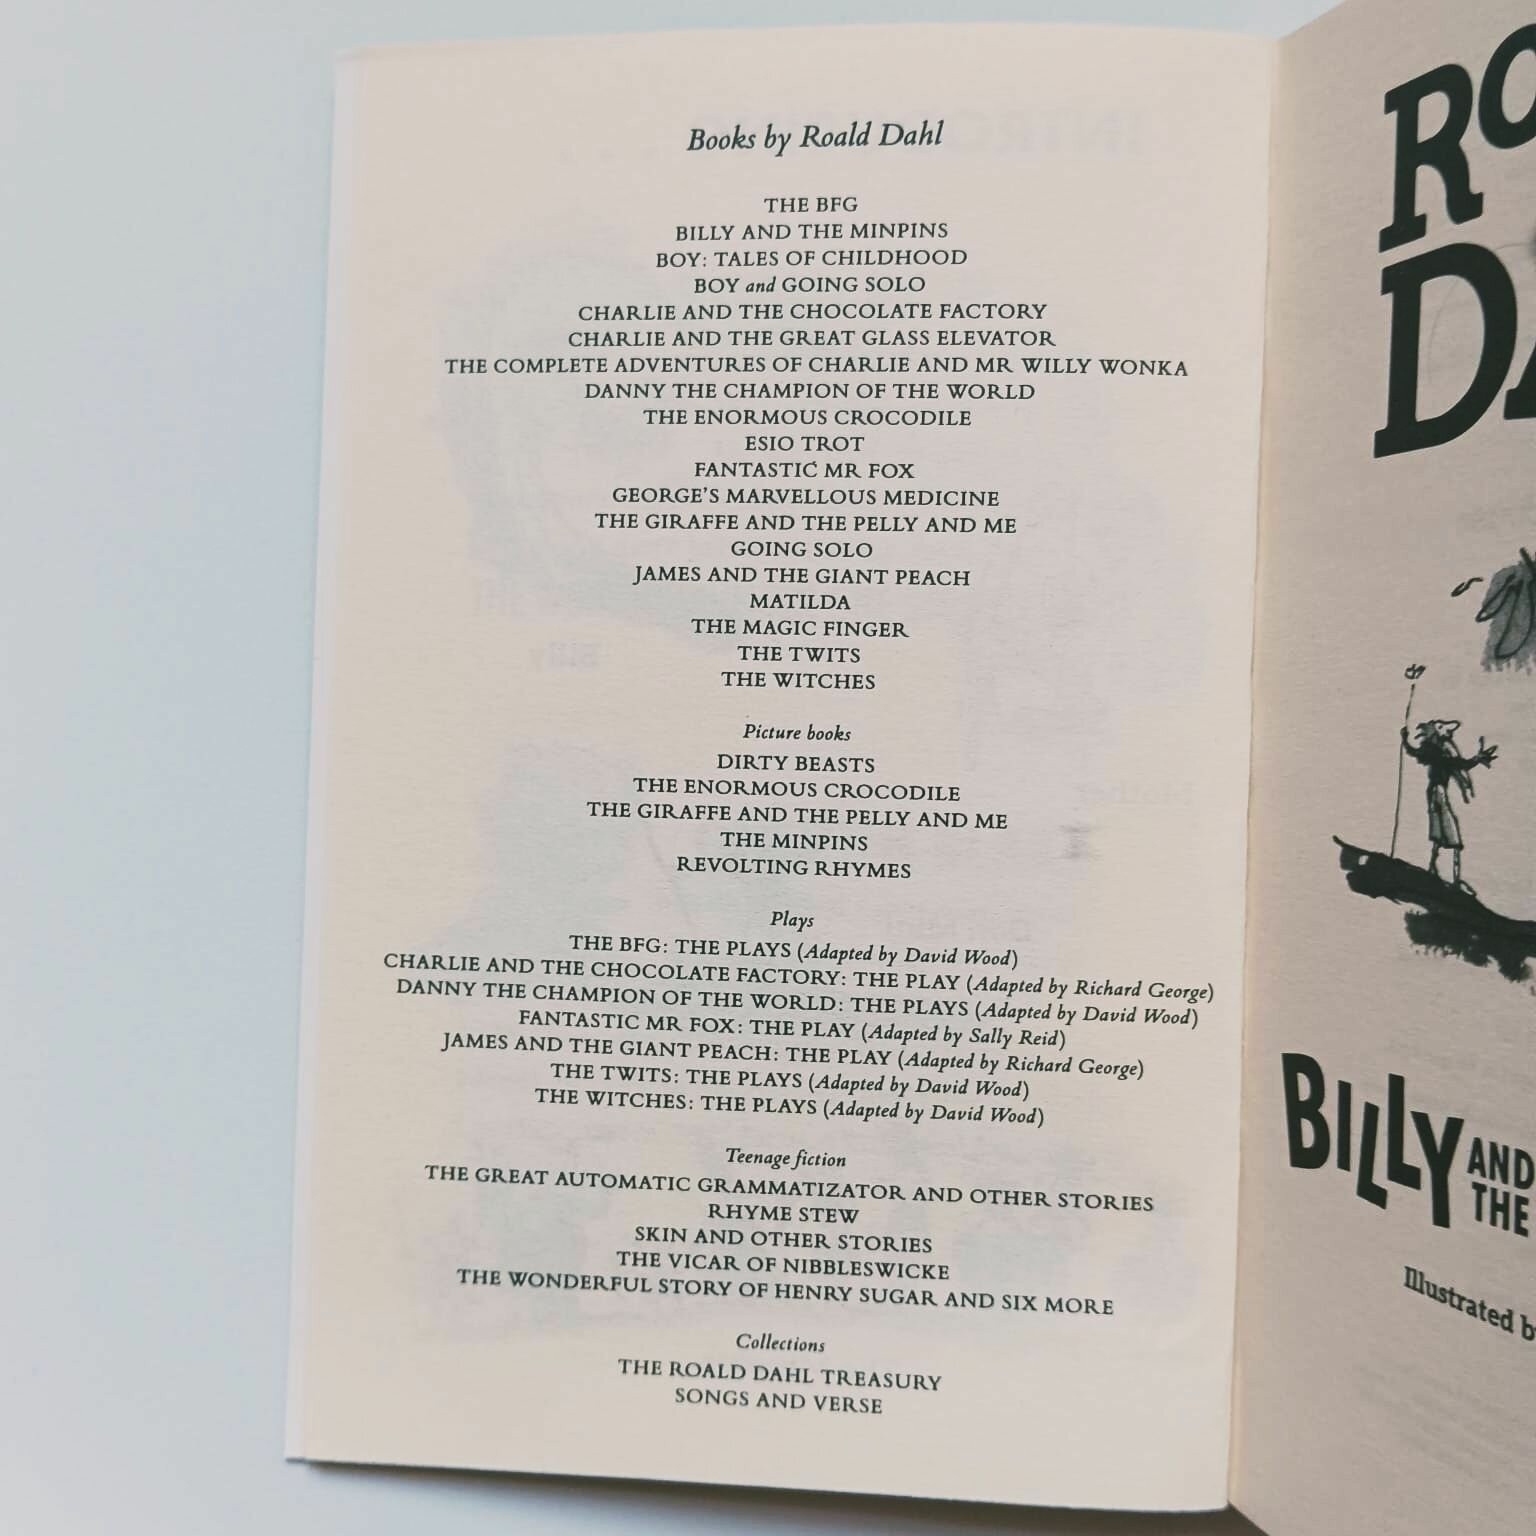 Books by Roald Dahl
THE BFG
BILLY AND THE MINPINS
BOY: TALES OF CHILDHOOD
BOY and GOING SOLO
CHARLIE AND THE CHOCOLATE FACTORY
CHARLIE AND THE GREAT GLASS ELEVATOR
THE COMPLETE ADVENTURES OF CHARLIE AND MR WILLY WONKA
DANNY THE CHAMPION OF THE WORLD
THE ENORMOUS CROCODILE
ESIO TROT
FANTASTIC MR FOX
GEORGE'S MARVELLOUS MEDICINE
THE GIRAFFE AND THE PELLY AND ME
GOING SOLO
JAMES AND THE GIANT PEACH
MATILDA
THE MAGIC FINGER
THE TWITS
THE WITCHES
Picture books
DIRTY BEASTS
THE ENORMOUS CROCODILE
THE GIRAFFE AND THE PELLY AND ME
THE MINPINS
REVOLTING RHYMES
Plays
THE BFG: THE PLAYS (Adapted by David Wood)
CHARLIE AND THE CHOCOLATE FACTORY: THE PLAY (Adapted by Richard George)
DANNY THE CHAMPION OF THE WORLD: THE PLAYS (Adapted by David Wood)
FANTASTIC MR FOX: THE PLAY (Adapted by Sally Reid)
JAMES AND THE GIANT PEACH: THE PLAY (Adapted by Richard George)
THE TWITS: THE PLAYS (Adapted by David Wood)
THE WITCHES: THE PLAYS (Adapted by David Wood)
Teenage fiction
THE GREAT AUTOMATIC GRAMMATIZATOR AND OTHER STORIES
RHYME STEW
SKIN AND OTHER STORIES
THE VICAR OF NIBBLESWICKE
THE WONDERFUL STORY OF HENRY SUGAR AND SIX MORE
Collections
THE ROALD DAHL TREASURY
SONGS AND VERSE
BILLY AND
THE
Illustrated